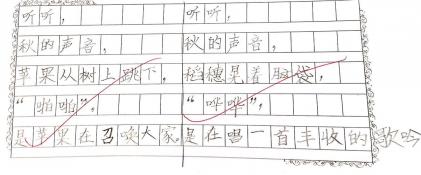 听听，
秋的声音，
苹果从树上跳下，
“啪啪”，
是苹果在召唤大家。
听听，
秋的声音，
稻穗晃着脑袋，
“哗哗”，
是在唱一首丰收的歌吟